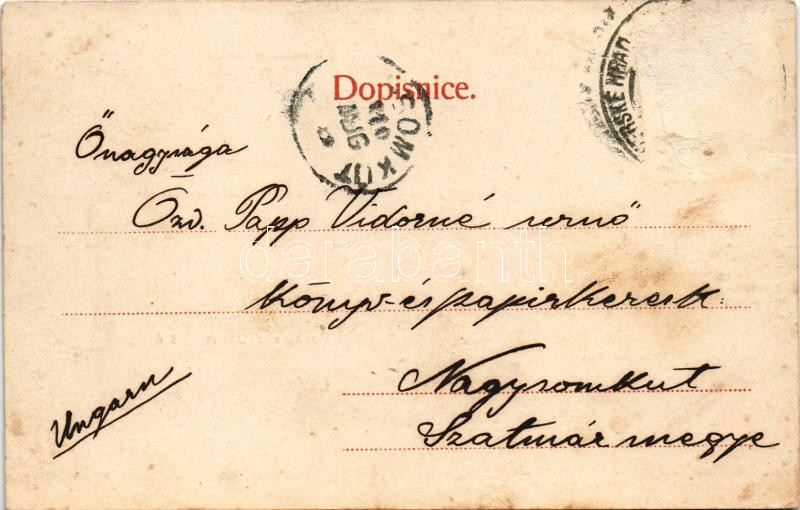 Dopisnice.
SOMKUT
910 AUG
RSKÉ HRAD
Őnagysága
Özv. Papp Vidorné urnő
Könyv- és papirkeresk.
Nagysomkut
Szatmár megye
Ungarn
darabanth